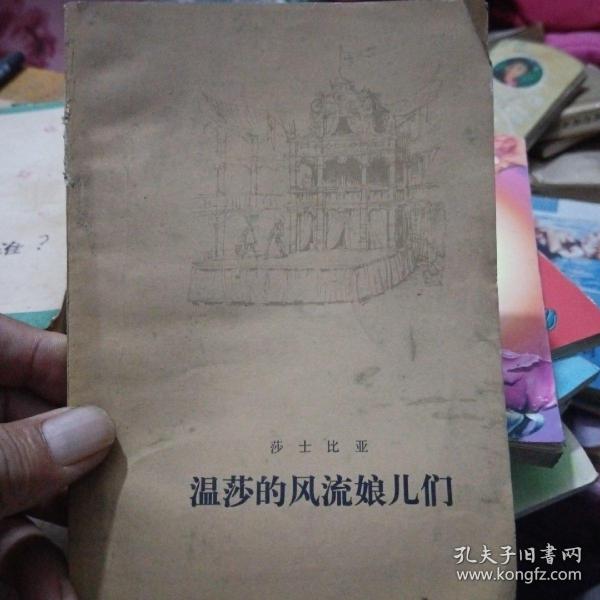 莎士比亚
温莎的风流娘儿们
孔夫子旧书网
www.kongfz.com